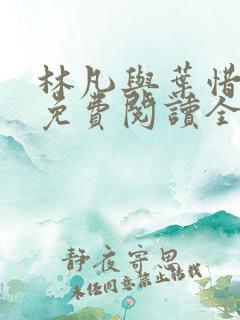 林凡與葉惜
免費閱讀全
靜夜寄思
未经同意禁止转载